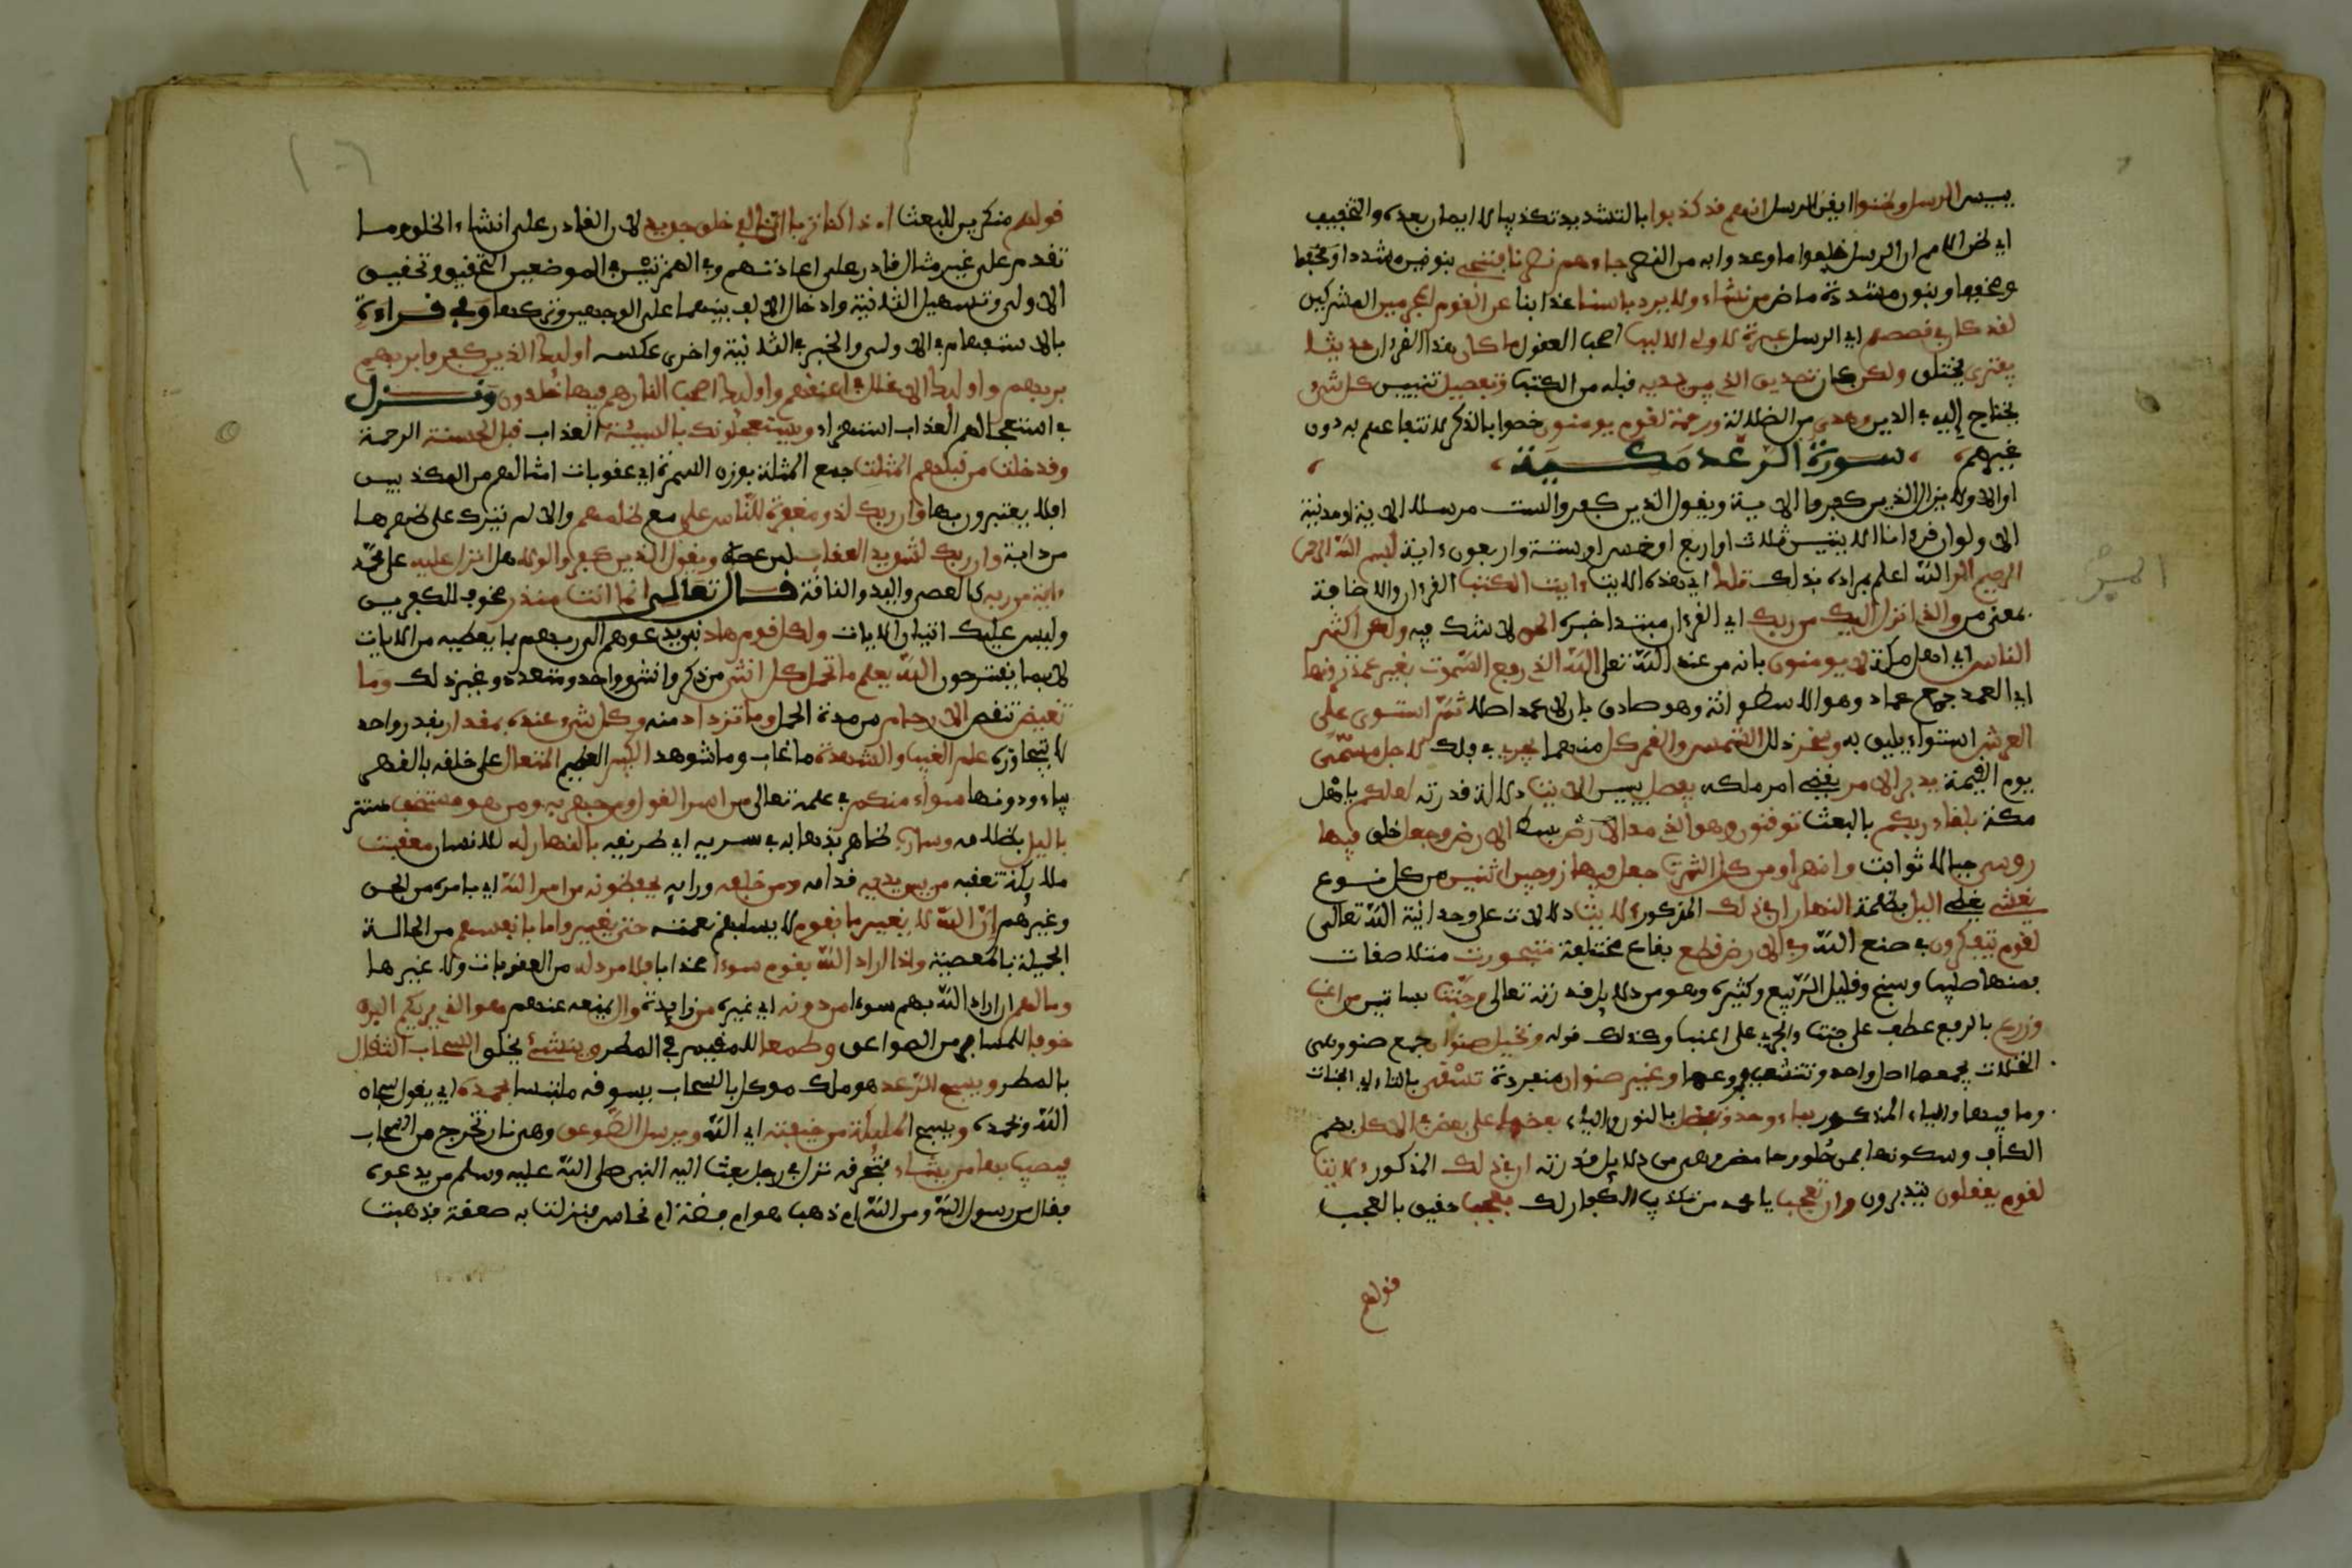 ييس الرسل وظنوا ايفن الرسل انهم فد كذبوا بالتشديد تكذيبا لا ايمان بعده والتخفيف
اي ظن الامم ان الرسل اخلفوا ما وعدوا به من النصر جاءهم نصرنا فننجي بنونين مشددا ومخففا
ومخففا وبنون مشددة ماض من نشاء ولا يرد باسنا عذابنا عن الفوم المجرمين المشركين
لفد كان في فصصهم اي الرسل عبرة لاولي الالبب اصحب العفول ما كان هذا الفرءان حديثا
يفترى يختلق ولكن كان تصديق الذي بين يديه فبله من الكتب وتفصيل تبيين كل شيء
يحتاج إليه في الدين وهدى من الضلالة ورحمة لفوم يومنون خصوا بالذكر لانتفاعهم به دون
غيرهم سورة الرعد مكية
او الا ولا يزال الذين كفروا الاية ويفول الذين كفروا لست مرسلا الاية او مدنية
الا ولو ان فرءانا الايتين ثلاث او اربع او خمس او ستة واربعون ءاية بسم الله الرحمن
الرحيم المر الله اعلم بمراده بذلك تلك اي هذه الايت ءايت الكتب الفرءان والاضافة
بمعنى من والذي انزل اليك من ربك اي الفرءان مبتدا خبره الحق لا شك فيه ولكن اكثر
الناس اي اهل مكة لا يومنون بانه من عند الله تعلى الله الذي رفع السموت بغير عمد ترونها
اي العمد جمع عماد وهو الاسطوانة وهو صادق بان لا عمد اصلا ثم استوى على
العرش استواء يليق به وسخر ذلل الشمس والفمر كل منهما يجري في فلكه لاجل مسمى
يوم الفيمة يدبر الامر يفضي امر ملكه يفصل يبين الايت دلالة فدرته لعلكم ياهل
مكة بلفاء ربكم بالبعث توفنون وهو الذي مد الارض بسط الارض وجعل خلق فيها
روسي جبالا ثوابت وانهرا ومن كل الثمرت جعل فيها زوجين اثنين من كل نوع
يغشي يغطي اليل بظلمته النهار ان في ذلك المذكور لايت دلالات على وحدانية الله تعالى
لفوم يتفكرون في صنع الله وفي الارض فطع بفاع مختلفة متجورت متلاصفات
فمنها طيب وسبخ وفليل الريع وكثيره وهو من دلايل فدرته تعالى وجنت بساتين من اعنب
وزرع بالرفع عطف على جنت والجر على اعنب وكذلك فوله ونخيل صنوان جمع صنو وهي
النخلات يجمعها اصل واحد وتتشعب فروعها وغير صنوان منفردة تسفى بالتاء اي الجنات
وما فيها والياء المذكور بماء وحد ونفضل بالنون والياء بعضها على بعض في الاكل بضم
الكاف وسكونها فمن حلو وحامض وهو من دلايل فدرته ان في ذلك المذكور لايت
لفوم يعفلون يتدبرون وان تعجب يا محمد من تكذيب الكفار لك فعجب حفيق بالعجب
فولهم
فولهم منكرين للبعث اءذا كنا تربا انا لفي خلق جديد لان الفادر على انشاء الخلق وما
تفدم على غير مثال فادر على اعادتهم وفي الهمزتين في الموضعين التحفيق وتحفيق
الاولى وتسهيل الثانية وادخال الالف بينهما على الوجهين وتركها وفي فراءة
بالاستفهام في الاولى والخبر في الثانية واخرى عكسه اوليك الذين كفروا بربهم
بربهم واوليك الاغلل في اعنفهم واوليك اصحب النار هم فيها خلدون ونزل
في استعجالهم العذاب استهزاء ويستعجلونك بالسيئة العذاب فبل الحسنة الرحمة
وفد خلت من فبلهم المثلت جمع المثلة بوزن السمرة اي عفوبات امثالهم من المكذبين
افلا يعتبرون بها وان ربك لذو مغفرة للناس على مع ظلمهم والا لم يترك على ظهرها
من دابة وان ربك لشديد العفاب لمن عصاه ويفول الذين كفروا لولا هل انزل عليه على محمد
ءاية من ربه كالعصى واليد والنافة فال تعالى انما انت منذر مخوف الكفرين
وليس عليك اتيان الايات ولكل فوم هاد نبي يدعوهم الى ربهم بما يعطيه من الايات
لا بما يفترحون الله يعلم ما تحمل كل انثى من ذكر وانثى وواحد ومتعدد وغير ذلك وما
تغيض تنفص الارحام من مدة الحمل وما تزداد منه وكل شيء عنده بمفدار بفدر واحد
لا يتجاوزه علم الغيب والشهدة ما غاب وما شوهد الكبير العظيم المتعال على خلفه بالفهر
بياء ودونها سواء منكم في علمه تعالى من اسر الفول ومن جهر به ومن هو مستخف مستتر
باليل بظلامه وسارب ظاهر بذهابه في سربه اي طريفه بالنهار له للانسان معفبت
ملايكة تعفبه من بين يديه فدامه ومن خلفه ورايه يحفظونه من امر الله اي بامره من الجن
وغيرهم ان الله لا يغير ما بفوم لا يسلبهم نعمته حتى يغيروا ما بانفسهم من الحالة
الجميلة بالمعصية واذا اراد الله بفوم سوءا عذابا فلا مرد له من العفوبات ولا غيرها
وما لهم ان اراد الله بهم سوءا من دونه اي غيره من زايدة وال يمنعه عنهم هو الذي يريكم البرق
خوفا للمسافر من الصواعق وطمعا للمفيم في المطر وينشئ يخلق السحاب الثفال
بالمطر ويسبح الرعد هو ملك موكل بالسحاب يسوفه ملتبسا بحمده اي يفول سبحان
الله وبحمده ويسبح المليكة من خيفته اي الله ويرسل الصوعق وهي نار تخرج من السحاب
فيصيب بها من يشاء فتحرفه نزل في رجل بعث اليه النبي صلى الله عليه وسلم من يدعوه
ففال من رسول الله ومن الله ام ذهب هو ام فضة ام نحاس فنزلت به صعفة فذهبت